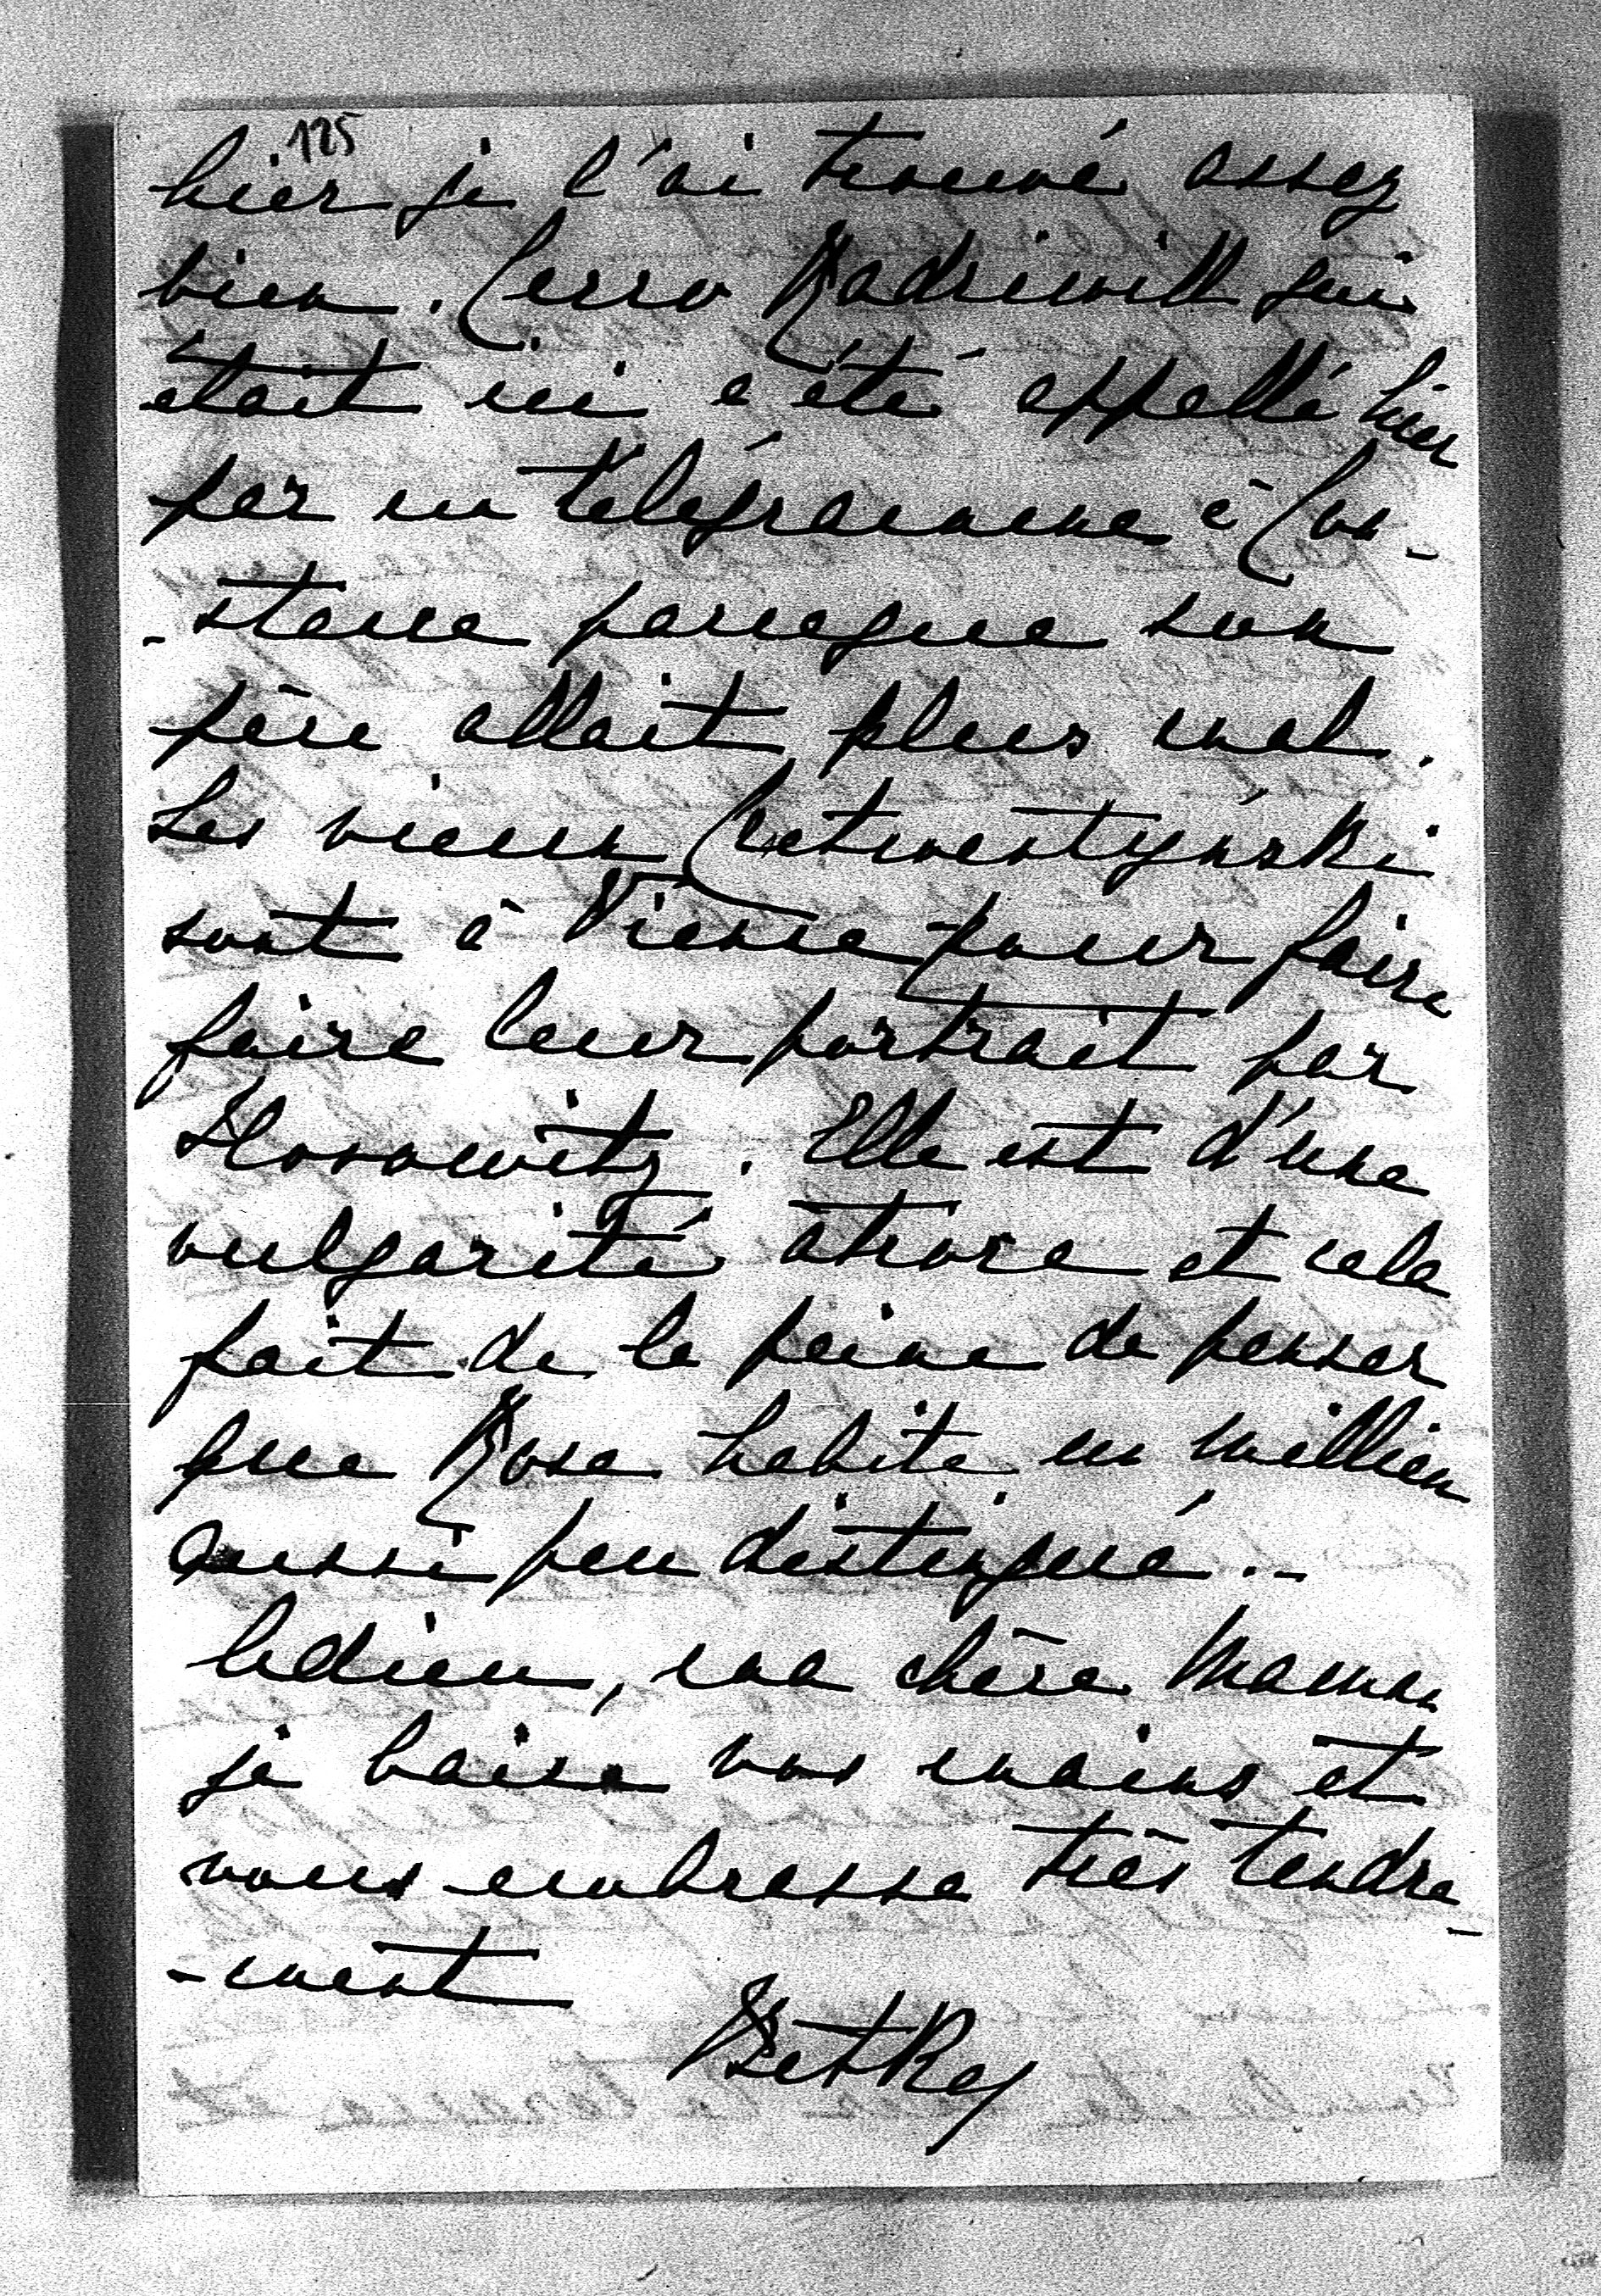 125
hier je l'ai trouvé assez
bien. Cerro Radziwill qui
était ici a été appellé hier
par un télégramme à Con-
-stance parceque son
père allait plus mal.
Les vieux Czetwertyński
sont à Vienne pour faire
faire leur portrait par
Horowitz. Elle est d'une
vulgarité atroce et cela
fait de la peine de penser
que Rose habite un millieu
aussi peu distingué. -
Adieu, ma chère Maman
je baise vos mains et
vous embrasse très tendre-
-ment